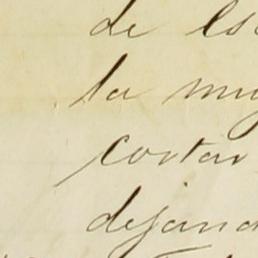 de es
la muj
cortar
dejand